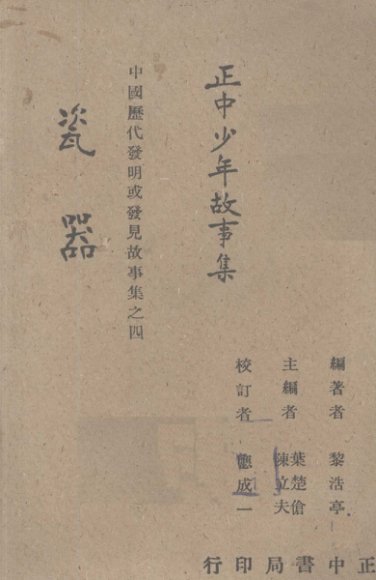 正中少年故事集
中國歷代發明或發見故事集之四
瓷器
編著者 黎浩亭
主編者 葉楚傖 陳立夫
校訂者 應成一
正中書局印行